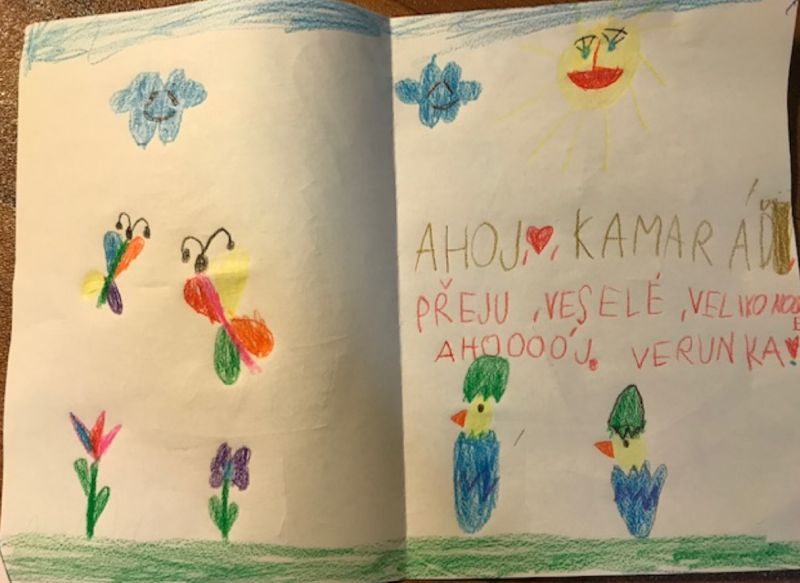 AHOJ, KAMARÁĎ
PŘEJU ,VESELÉ ,VELIKONOC
E
AHOOOÓJ. VERUNKA!